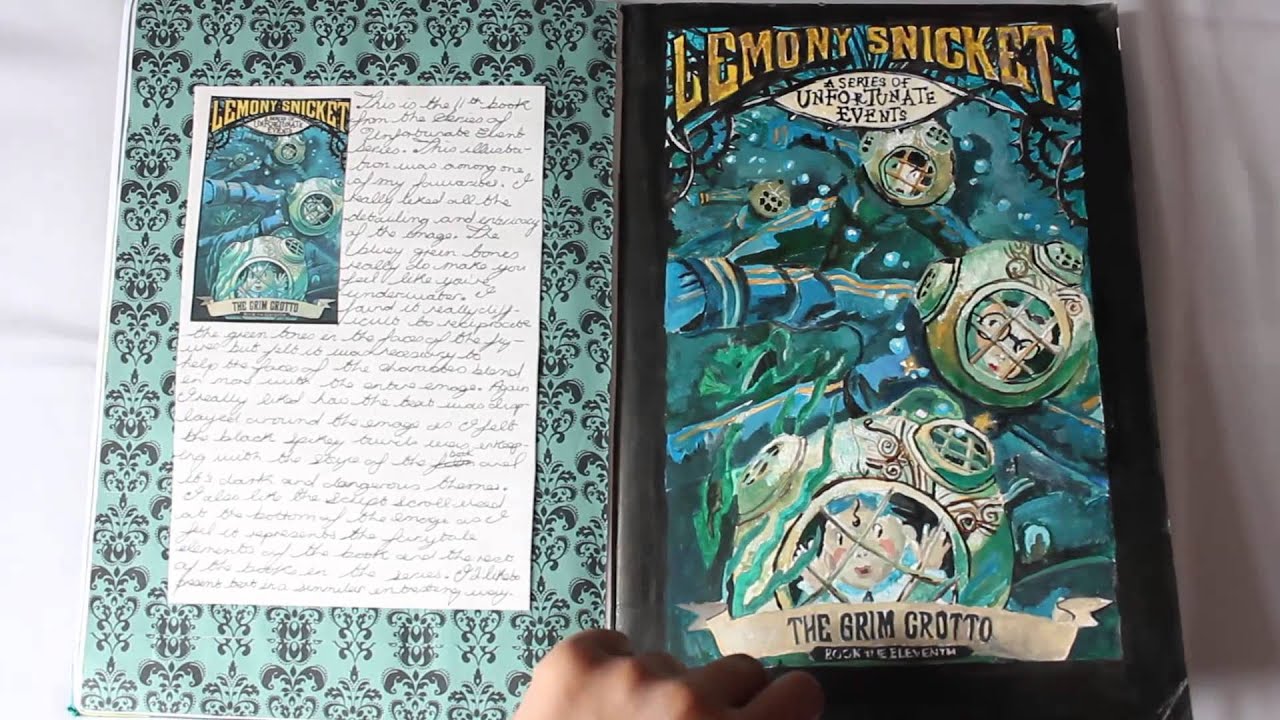 LEMONY SNICKET
A SERIES OF
UNFORTUNATE
EVENTS
THE GRIM GROTTO
This is the 11th book
from the series of
Unfortunate Event
Series. This illustra-
tion was among one
of my favourites. I
really liked all the
detailing and intricacy
of the image. The
bluey green tones
really do make you
feel like you're
underwater. I
found it really diff-
icult to
the green tones in the faces of the fig-
ures but felt it was necessary to
help the faces of the characters blend
in more with the entire image. Again
I really liked how the text was disp-
layed around the image as I felt
the black spikey swirls were
ing with the style of the book and
it's dark and dangerous themes.
I also like the script scroll used
at the bottom of the image as I
feel it represents the fairytale
elements of the book and the rest
of the book in the series. I'd like to
present text in a similar interesting way.
LEMONY SNICKET
A SERIES OF
UNFORTUNATE
EVENTS
THE GRIM GROTTO
BOOK THE ELEVENTH